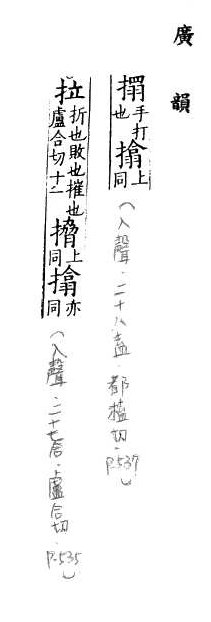 廣韻
搨手打也㩉上同
(入聲.二十八盍.都榼切.P.537)
拉折也敗也摧也盧合切十一㩉上同搨亦同
(入聲.二十七合.盧合切.P.535)